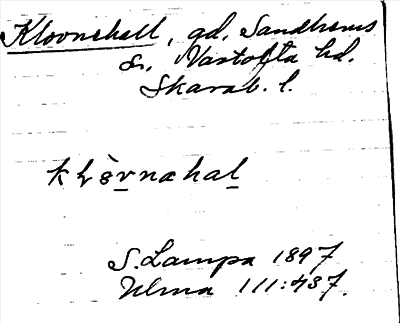 Kloonehall, gd. Sandhems
sn, Vartofta hd.
Skarab. l.
S. Lampa 1897
Ulma 111:437.